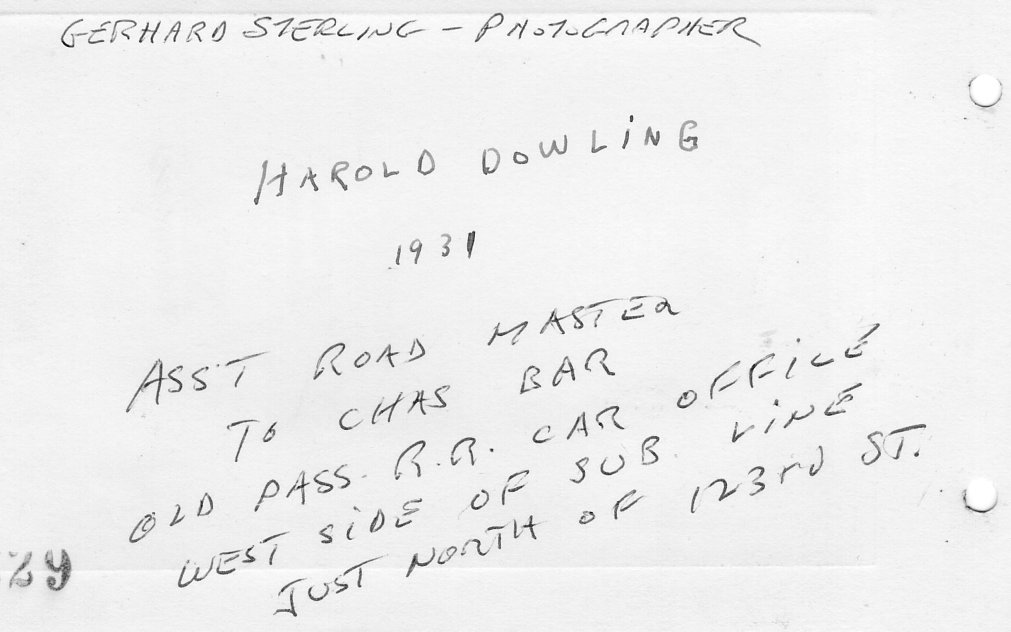 GERHARD STERLING - PHOTOGRAPHER
HAROLD DOWLING
1931
ASS'T ROAD MASTER
TO CHAS BAR
OLD PASS. R.R. CAR OFFICE
WEST SIDE OF SUB. LINE
JUST NORTH OF 123rd ST.
29